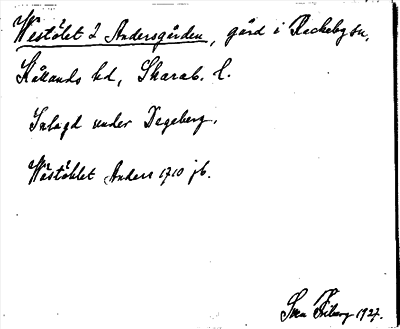 Westölet 2 Andersgården, gård i Rackeby sn,
Kållands hd, Skarab. l.
Inlagd under Degeberg.
Wästöhlet Anders 1710 jb.
1927.